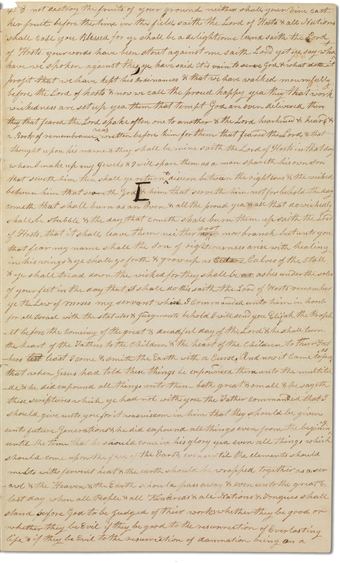 not destroy the fruits of your ground neither shall your vine cast
her fruit before the time in the fields saith the Lord of Hosts & all Nations
shall call you Blessed for ye shall be a delightsome land saith the Lord
of Hosts your words have been stout against me saith Lord yet ye say what
have we spoken against thee ye have said it is vain to serve God & what
profit that we have kept his ordinances & that we have walked mournfully
before the Lord of hosts & now we call the proud happy yea they that work
wickedness are set up yea them that tempt God are even delivered then
they that feared the Lord spake often one to another & the Lord hearkened & heard &
a Book of remembrance was written before him for them that feared the Lord & that
thought upon his name & they shall be mine saith the Lord of Hosts in that day
when I make up my Jewels & I will spare them as a man spareth his own son
that serveth him then shall ye discern between the righteous & the wicked
between him that serveth God & him that serveth him not for behold the day
cometh that shall burn as an oven & all the proud yea & all that do wickedly
shall be stubble & the day that cometh shall burn them up saith the Lord
of Hosts that it shall leave them neither root nor branch but unto you
that fear my name shall the Son of righteousness arise with healing
in his wings & ye shall go forth & grow up as calves of the stall
& ye shall tread down the wicked for they shall be ashes under the soles
of your feet in the day that I shall do this saith the Lord of Hosts remember
ye the Law of Moses my servant which I commanded unto him in Horeb
for all Israel with the statutes & judgments behold I will send you Elijah the Prophet
before the coming of the great & dreadful day of the Lord & he shall turn
the heart of the Fathers to the Children & the heart of the children to their Fathers
lest I come & smite the Earth with a curse And now it came to pass
that when Jesus had told these things he expounded them unto the multitude
& he did expound all things unto them both great & small & he saith
these scriptures which ye had not with you the Father commanded that I
should give unto you for it was wisdom in him that they should be given
unto future generations & he did expound all things even from the beginning
until the time that he should come in his glory yea even all things which
should come upon the face of the Earth even until the elements should
melt with fervent heat & the earth should be wrapped together as a
scroll & the Heavens & the Earth should pass away & even unto the great &
last day when all People & all Kindreds & all Nations & Tongues shall
stand before God to be judged of their works whether they be good or
whether they be Evil if they be good to the resurrection of Everlasting
life & if they be Evil to the resurrection of damnation being on a